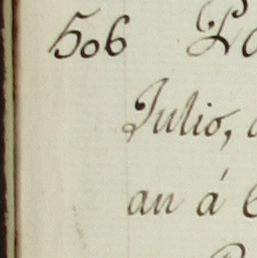 506
Julio,
an á